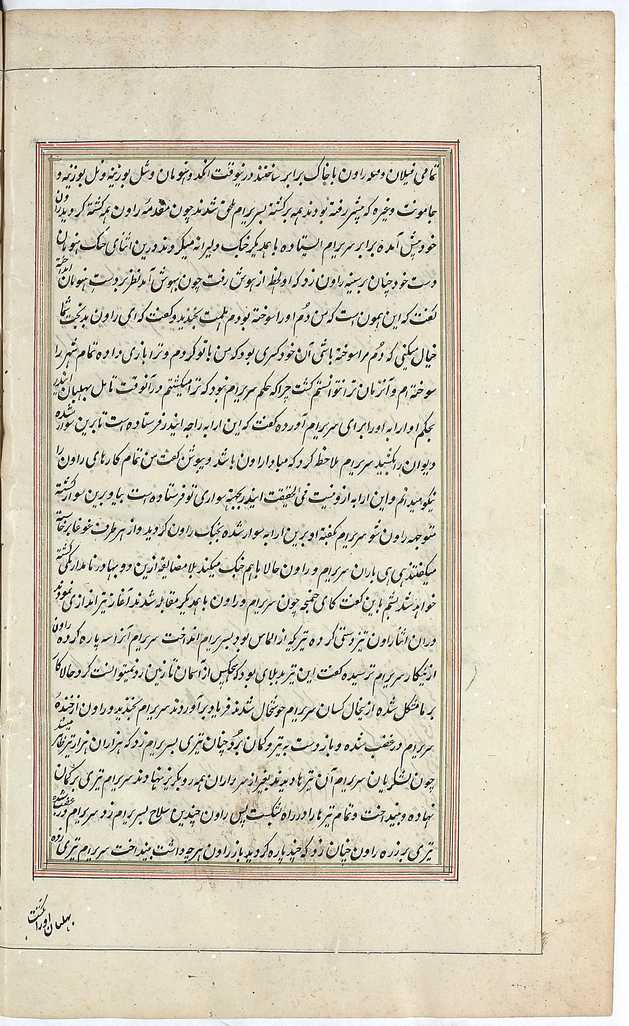 تمامی فیلان و سپاه راون با خاک برابر ساختند درینوقت انگد و هنومان و نل بوزینه و
جامونت و غیره که پیش رفته بودند همه برگشته بسریرام ملحق شدند چون مقدمه راون همه کشته گردید راون
خود پیش آمده برابر سریرام ایستاده با همدیگر جنگ دلیرانه میکردند درین اثنای جنگ هنومان
دست خود چنان بر سینه راون زد که او لحظه از هوش رفت چون بهوش آمد نظر بر دست هنومان انداخته
گفت که این همون است که من دم او را سوخته بودم بخندید و گفت که ای راون بدبخت شما
خیال میکنی که دم مرا سوخته باشی آن خودسری بود که من با تو کردم و ترا بازی داده تمام شهر را
سوخته ام و آنزمان ترا نتوانستم کشت چرا که حکم سریرام نبود که ترا میکشتم در آنوقت تابل بهلبان ایندر
بحکم او ارابه او را برای سریرام آورده گفت که این ارابه راجه ایندر فرستاده است تا برین سوار شده
دیوان را بکشید سریرام ملاحظه کرد که مبادا راون باشد و بیبیشن گفت من تمام کارهای راون را
نیکو میدانم و این ارابه ازو نیست فی الحقیقت ایندر بجهته سواری تو فرستاده است بیا و برین سوار گشته
متوجه راون شو سریرام بگفته او برین ارابه سوار شده بجنگ راون گردید و از هر طرف غوغا برخاسته
میگفتند هی هی یاران سریرام و راون حالا باهم جنگ میکنند بلا مضایقه ازین دو بهادر نامدار یکی کشته
خواهد شد بشم باین گفت کای جمجه چون سریرام و راون با همدیگر مقابله شدند آغاز تیراندازی نمودند
دران اثنا راون تیزدستی کرده تیریکه از الماس بود بسریرام انداخت سریرام آنرا سه پاره کرده راون
ازین کار سریرام ترسیده گفت این تیر بلای بود که هیچکس از آسمان تا زمین رد نمیتوانست کرد حالا کار
بر ما مشکل شده ازینحال کسان سریرام خوشحال شدند فریاد برآوردند سریرام بخندید و راون از خنده
سریرام در غضب شده و باز دست به تیر و کمان برد و چنان تیری بسریرام زد که هزاران هزار تیر ظاهر میشد
چون لشکریان سریرام آن تیرها دیدند بغیر از سرداران همه رو بگریز نهادند سریرام تیری بر کمان
نهاده و بینداخت و تمام تیرها را در راه بشکست پس راون چندین سلاح بسریرام زد سریرام در غضب شده
تیری بر زره راون چنان زد که چند پاره گردید باز راون هر چه داشت بینداخت سریرام تیری زده
بهلبان او را بکشت